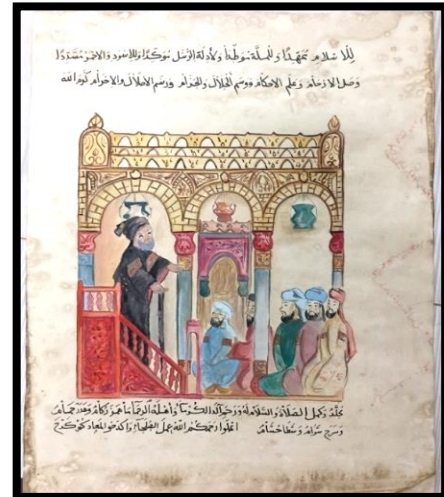 للاسلام ممهدا وللملة موطدا ولأدلة الرسل موكدا وللاسود والاحمر مسددا
وصل الارحام وعلم الاحكام ووسم الحلال والحرام ورسم الاحلال والاحرام كرم الله
محله وكمل الصلاة والسلام له ورحم آله الكرما وأهله الرحما ما همر ركام وهدر حمام
وسرح سوام وسطا حسام اعملوا رحمكم الله عمل الصلحاء واكدحوا لمعادكم كدح